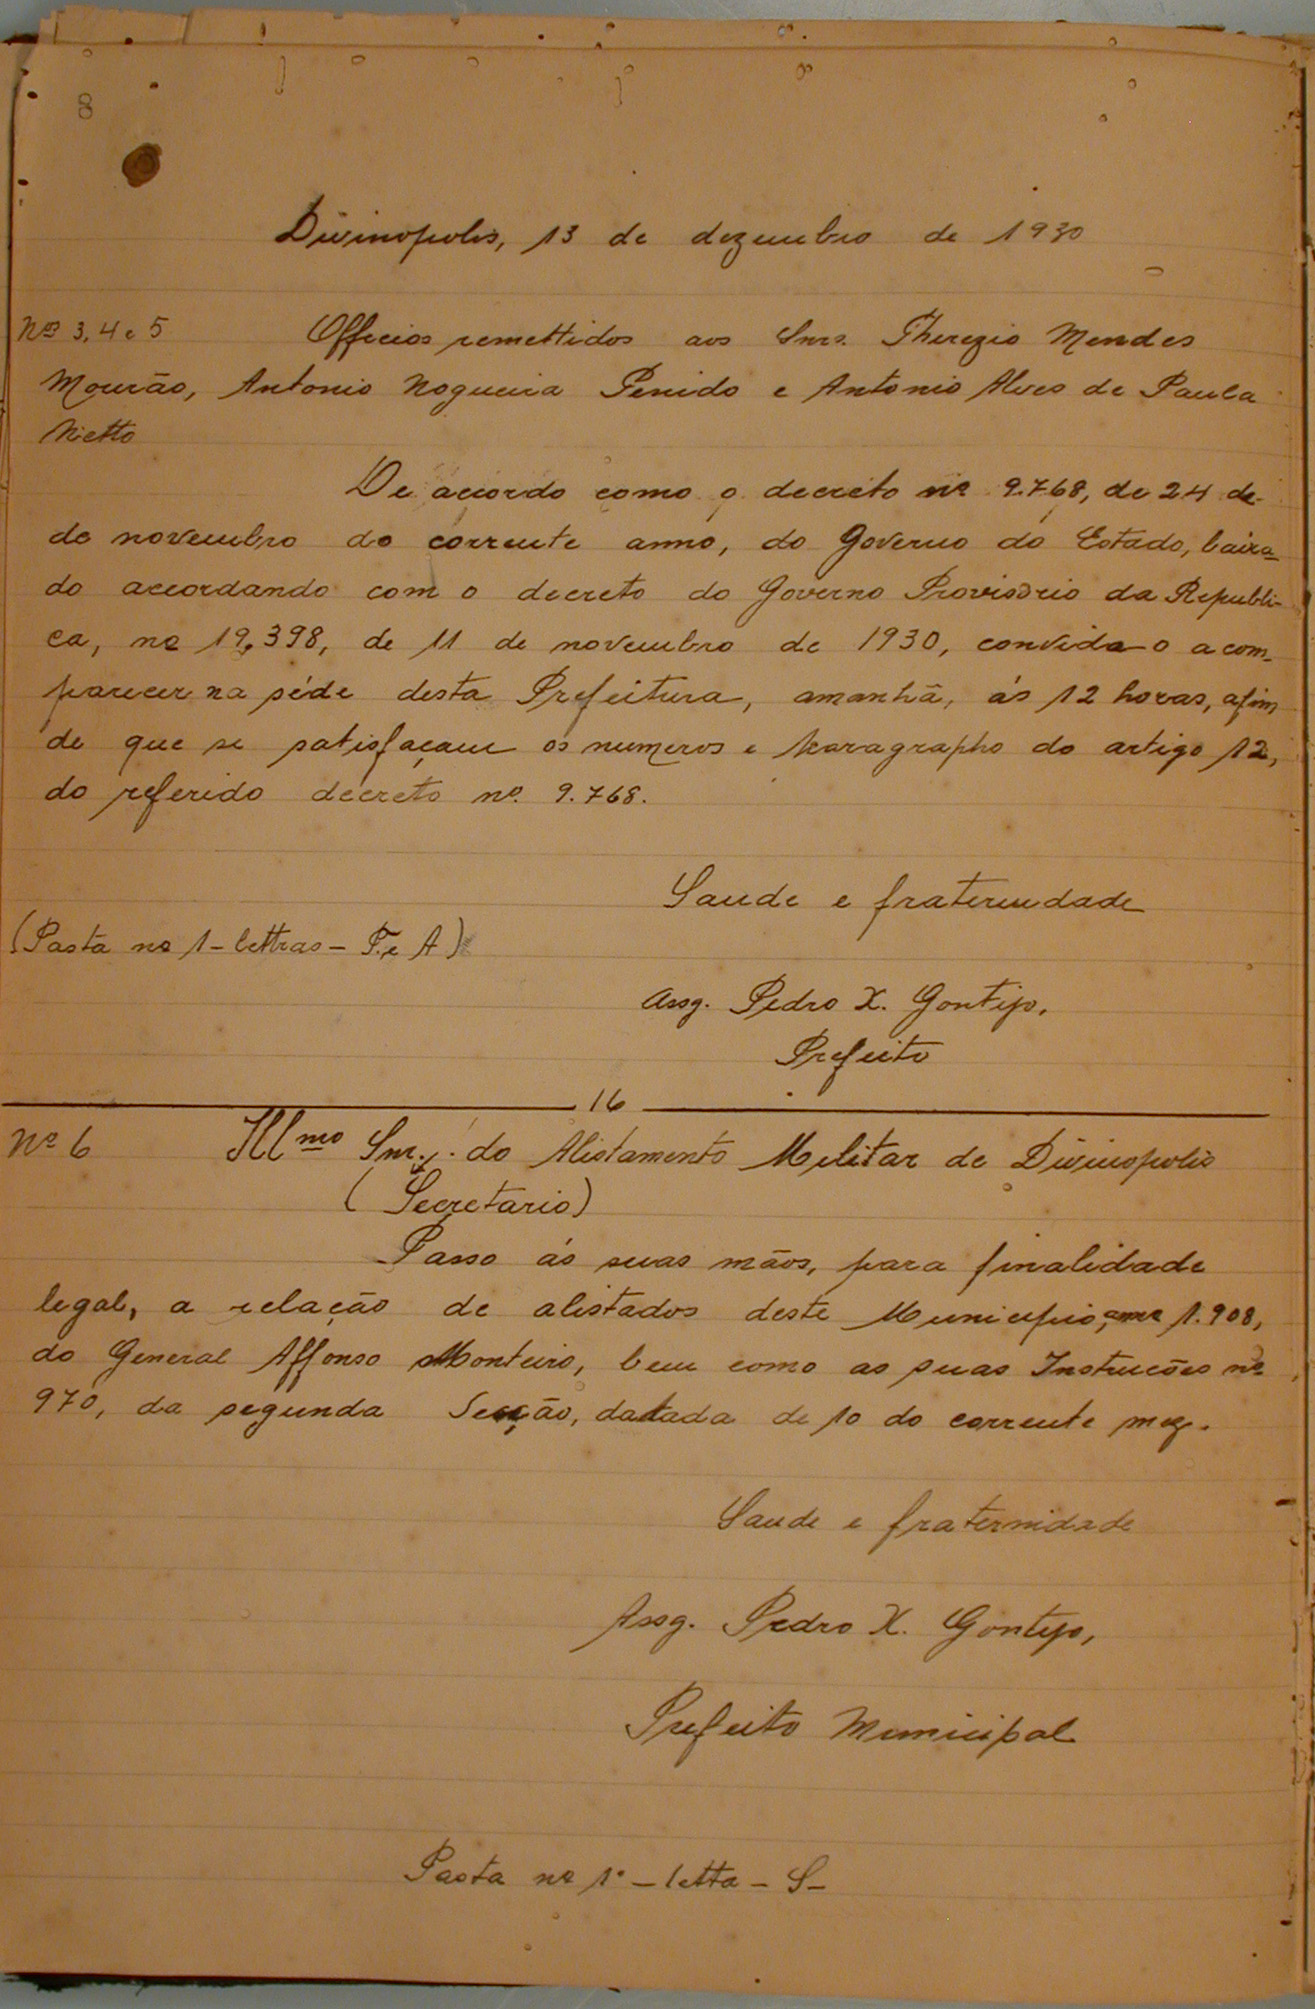 8
Divinopolis, 13 de dezembro de 1930
Nos 3, 4 e 5 Officios remettidos aos Snrs. Therezio Mendes
Mourão, Antonio Nogueira Penido e Antonio Alves de Paula
Netto
De acordo como o decreto nº 9.768, de 24 de
de novembro do corrente anno, do Governo do Estado, baixa-
do accordando com o decreto do Governo Provisorio da Republi-
ca, nº 19.398, de 11 de novembro de 1930, convida-o a com-
parecer na séde desta Prefeitura, amanhã, ás 12 horas, afim
de que se satisfaçam os numeros e paragrapho do artigo 12,
do referido decreto nº. 9.768.
Saude e fraternidade
(Pasta nº 1 - lettras - T. e A)
Assg. Pedro X. Gontijo,
Prefeito
16
Nº 6 Illmo Snr. do Alistamento Militar de Divinopolis
(Secretario)
Passo ás suas mãos, para finalidade
legal, a relação de alistados deste Municipio, 1.908,
do General Affonso Monteiro, bem como as suas Instrucões nº
970, da segunda Secção, datada de 10 do corrente mez.
Saude e fraternidade
Assg. Pedro X. Gontijo,
Prefeito Municipal
Pasta nº 1º - letta - S -